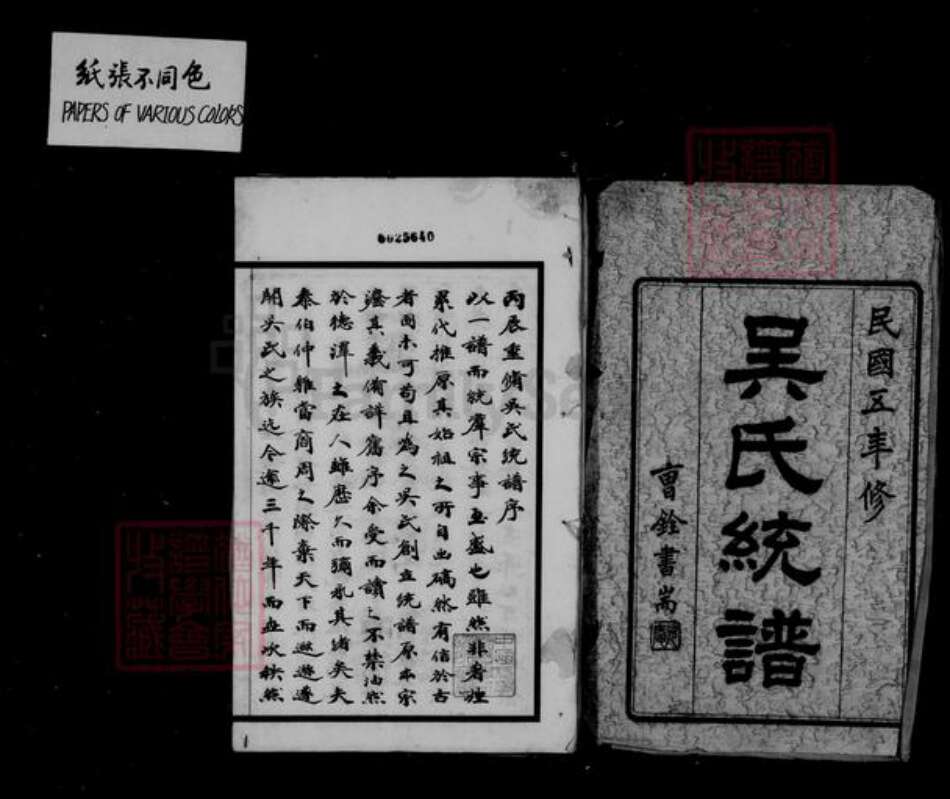 紙張不同色
PAPERS OF VARIOUS COLORS
民國五年修
吳氏統譜
曹銓書耑
6625640
丙辰重脩吳氏統譜序
以一譜而統羣宗事至盛也雖然非者歷
累代推原其始祖之所自出確然有信於古
者固未可苟且為之吳氏創立統譜原本宗
澄其義備詳舊序余受而讀之不禁油然
於德澤之在人雖歷久而彌永其緒矣夫
泰伯仲雍當商周之際棄天下而遯遊遂
開吳氏之族迄今逾三千年而